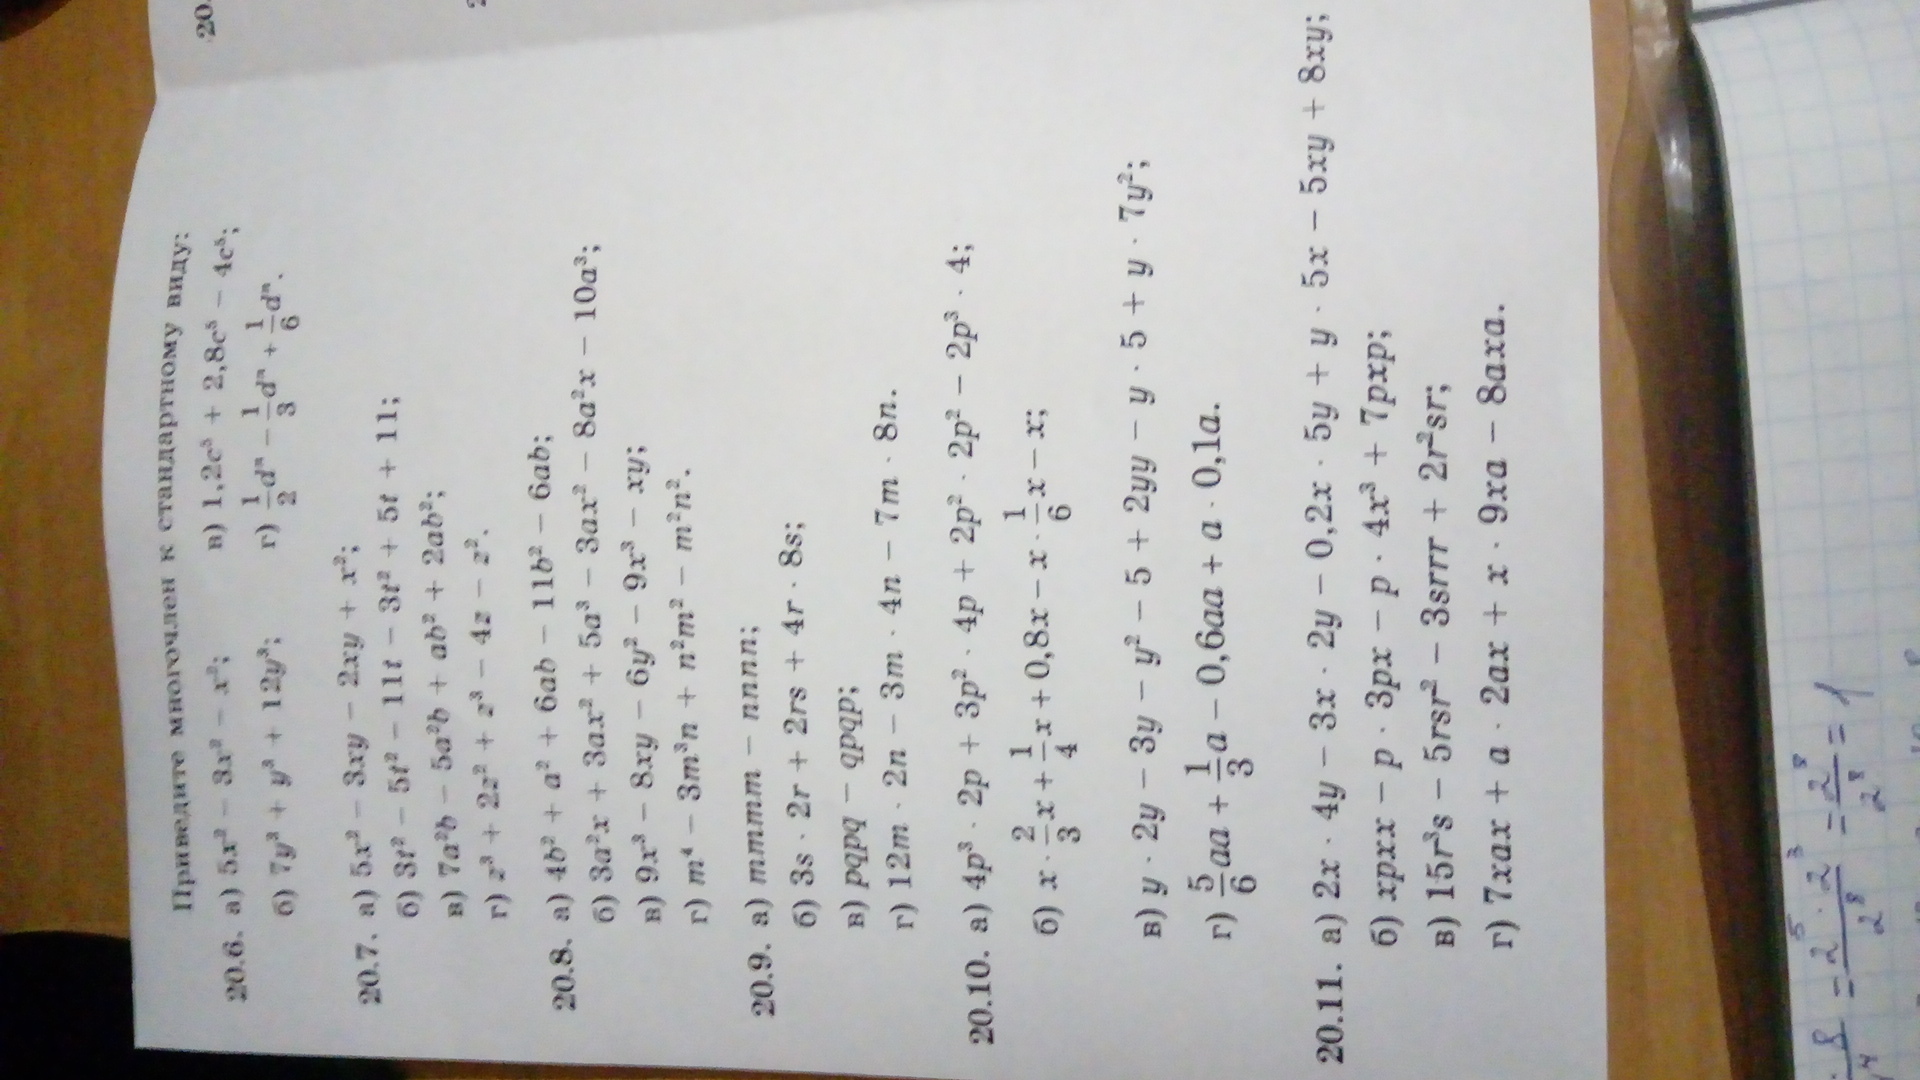 20.
Приведите многочлен к стандартному виду:
20.6. а) 5x² − 3x² − x²; в) 1,2c⁵ + 2,8c⁵ − 4c⁵;
б) 7y³ + y³ + 12y³; г) 1/2 dⁿ − 1/3 dⁿ + 1/6 dⁿ.
20.7. а) 5x² − 3xy − 2xy + x²;
б) 3t² − 5t² − 11t − 3t² + 5t + 11;
в) 7a²b − 5a²b + ab² + 2ab²;
г) z³ + 2z² + z³ − 4z − z².
20.8. а) 4b² + a² + 6ab − 11b² − 6ab;
б) 3a²x + 3ax² + 5a³ − 3ax² − 8a²x − 10a³;
в) 9x³ − 8xy − 6y² − 9x³ − xy;
г) m⁴ − 3m³n + n²m² − m²n².
20.9. а) mmmm − nnnn;
б) 3s · 2r + 2rs + 4r · 8s;
в) pqpq − qpqp;
г) 12m · 2n − 3m · 4n − 7m · 8n.
20.10. а) 4p³ · 2p + 3p² · 4p + 2p² · 2p² − 2p³ · 4;
б) x · 2/3 x + 1/4 x + 0,8x − x · 1/6 x − x;
в) y · 2y − 3y − y² − 5 + 2yy − y · 5 + y · 7y²;
г) 5/6 aa + 1/3 a − 0,6aa + a · 0,1a.
20.11. а) 2x · 4y − 3x · 2y − 0,2x · 5y + y · 5x − 5xy + 8xy;
б) xpxx − p · 3px − p · 4x³ + 7pxp;
в) 15r³s − 5rsr² − 3srrr + 2r²sr;
г) 7xax + a · 2ax + x · 9xa − 8axa.
= 2⁵ · 2³ / 2⁸ = 2⁸ / 2⁸ = 1